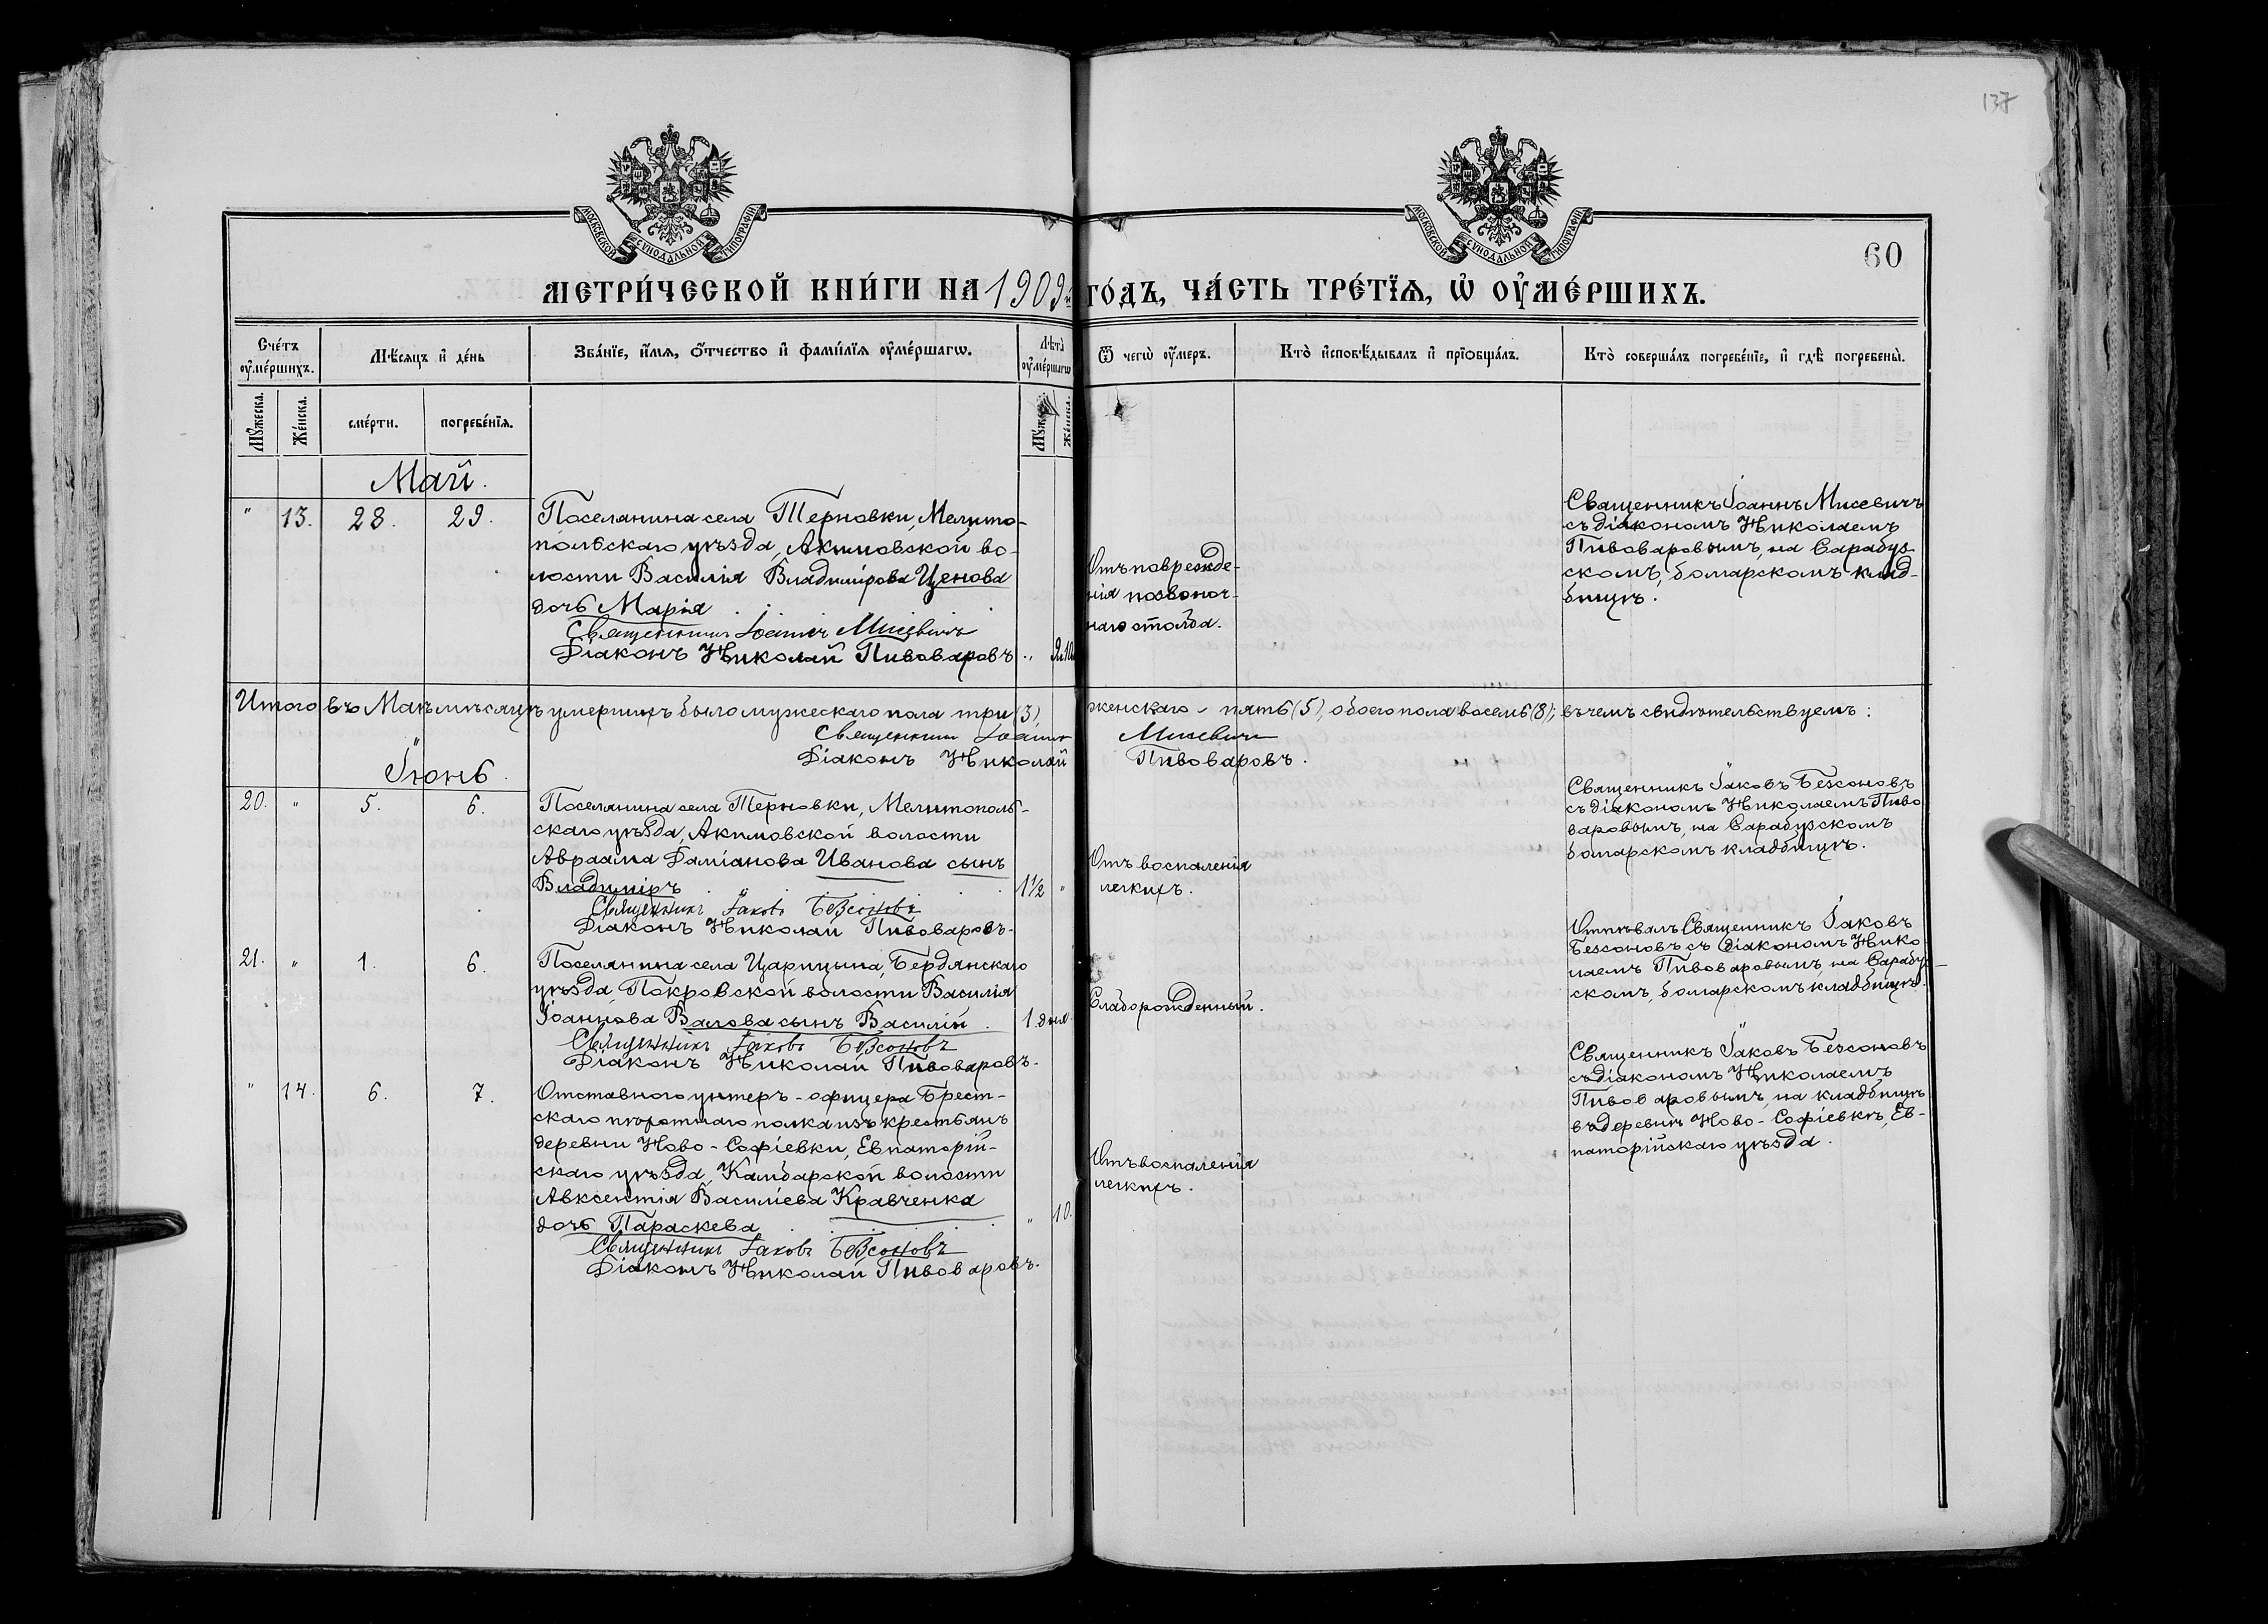 137
МОСКОВСКОЙ СѴНОДАЛЬНОЙ ТИПОГРАФІИ
МОСКОВСКОЙ СѴНОДАЛЬНОЙ ТИПОГРАФІИ
60
МЕТРИ́ЧЕСКОЙ КНИ́ГИ НА 1909й ГО́ДЪ, ЧА́СТЬ ТРЕ́ТЇѦ, Ѡ҆ ОУ҆МЕ́РШИХЪ.
Сче́тъ оу҆ме́ршихъ.
Мѣ́сѧцъ и҆ де́нь
Зва́нїе, и҆́мѧ, ѻ҆́тчество и҆ фами́лїѧ оу҆ме́ршагѡ.
Лѣ́та оу҆ме́ршагѡ
Ѿ чегѡ̀ оу҆́меръ.
Кто̀ и҆сповѣ́дывалъ и҆ прїѡбща́лъ.
Кто̀ соверша́лъ погребе́нїе, и҆ гдѣ̀ погребены̀.
Мꙋ́жеска.
Же́нска.
сме́рти.
погребе́нїѧ.
Мꙋ́жеск
Же́нска.
Май.
" 13. 28. 29.
Поселянина села Терновки, Мелито-
польскаго уѣзда, Акимовской во-
лости Василія Владимірова Ценова
дочь Марія
Священникъ Іоаннъ Мисевичъ
Діаконъ Николай Пивоваровъ
Отъ поврежде-
нія позвоноч-
наго столба.
Священникъ Іоаннъ Мисевичъ
съ діакономъ Николаемъ
Пивоваровымъ, на Сарабуз-
скомъ, болгарскомъ клад-
бищѣ.
Итого въ Маѣ мѣсяцѣ умершихъ было мужескаго пола три (3), женскаго - пять (5), обоего пола восемь (8); въ чемъ свидѣтельствуемъ:
Священникъ Іоаннъ Мисевичъ
Діаконъ Николай Пивоваровъ.
Іюнь.
20. " 5. 6.
Поселянина села Терновки, Мелитополь-
скаго уѣзда, Акимовской волости
Авраама Даміанова Иванова сынъ
Владиміръ 1½ "
Священникъ Іаковъ Безсоновъ
Діаконъ Николай Пивоваровъ.
Отъ воспаленія
легкихъ.
Священникъ Іаковъ Безсоновъ
съ діакономъ Николаемъ Пиво
варовымъ, на Сарабузскомъ
болгарскомъ кладбищѣ.
21. " 1. 6.
Поселянина села Царицына, Бердянскаго
уѣзда, Покровской волости Василія
Іоаннова Валова сынъ Василій. 1 дня
Священникъ Іаковъ Безсоновъ
Діаконъ Николай Пивоваровъ.
Слаборожденный.
Отпѣвалъ Священникъ Іаковъ
Безсоновъ съ діакономъ Нико
лаемъ Пивоваровымъ, на Сарабуз-
скомъ, болгарскомъ кладбищѣ.
" 14. 6. 7.
Отставного унтеръ-офицера Брест-
скаго пѣхотнаго полка изъ крестьянъ
деревни Ново-Софіевки, Евпаторій-
скаго уѣзда, Камбарской волости
Авксентія Василіева Кравченка
дочь Параскева " 10.
Священникъ Іаковъ Безсоновъ
Діаконъ Николай Пивоваровъ.
Отъ воспаленія
легкихъ.
Священникъ Іаковъ Безсоновъ
съ діакономъ Николаемъ
Пивоваровымъ, на кладбищѣ
въ деревнѣ Ново-Софіевкѣ, Ев-
паторійскаго уѣзда.